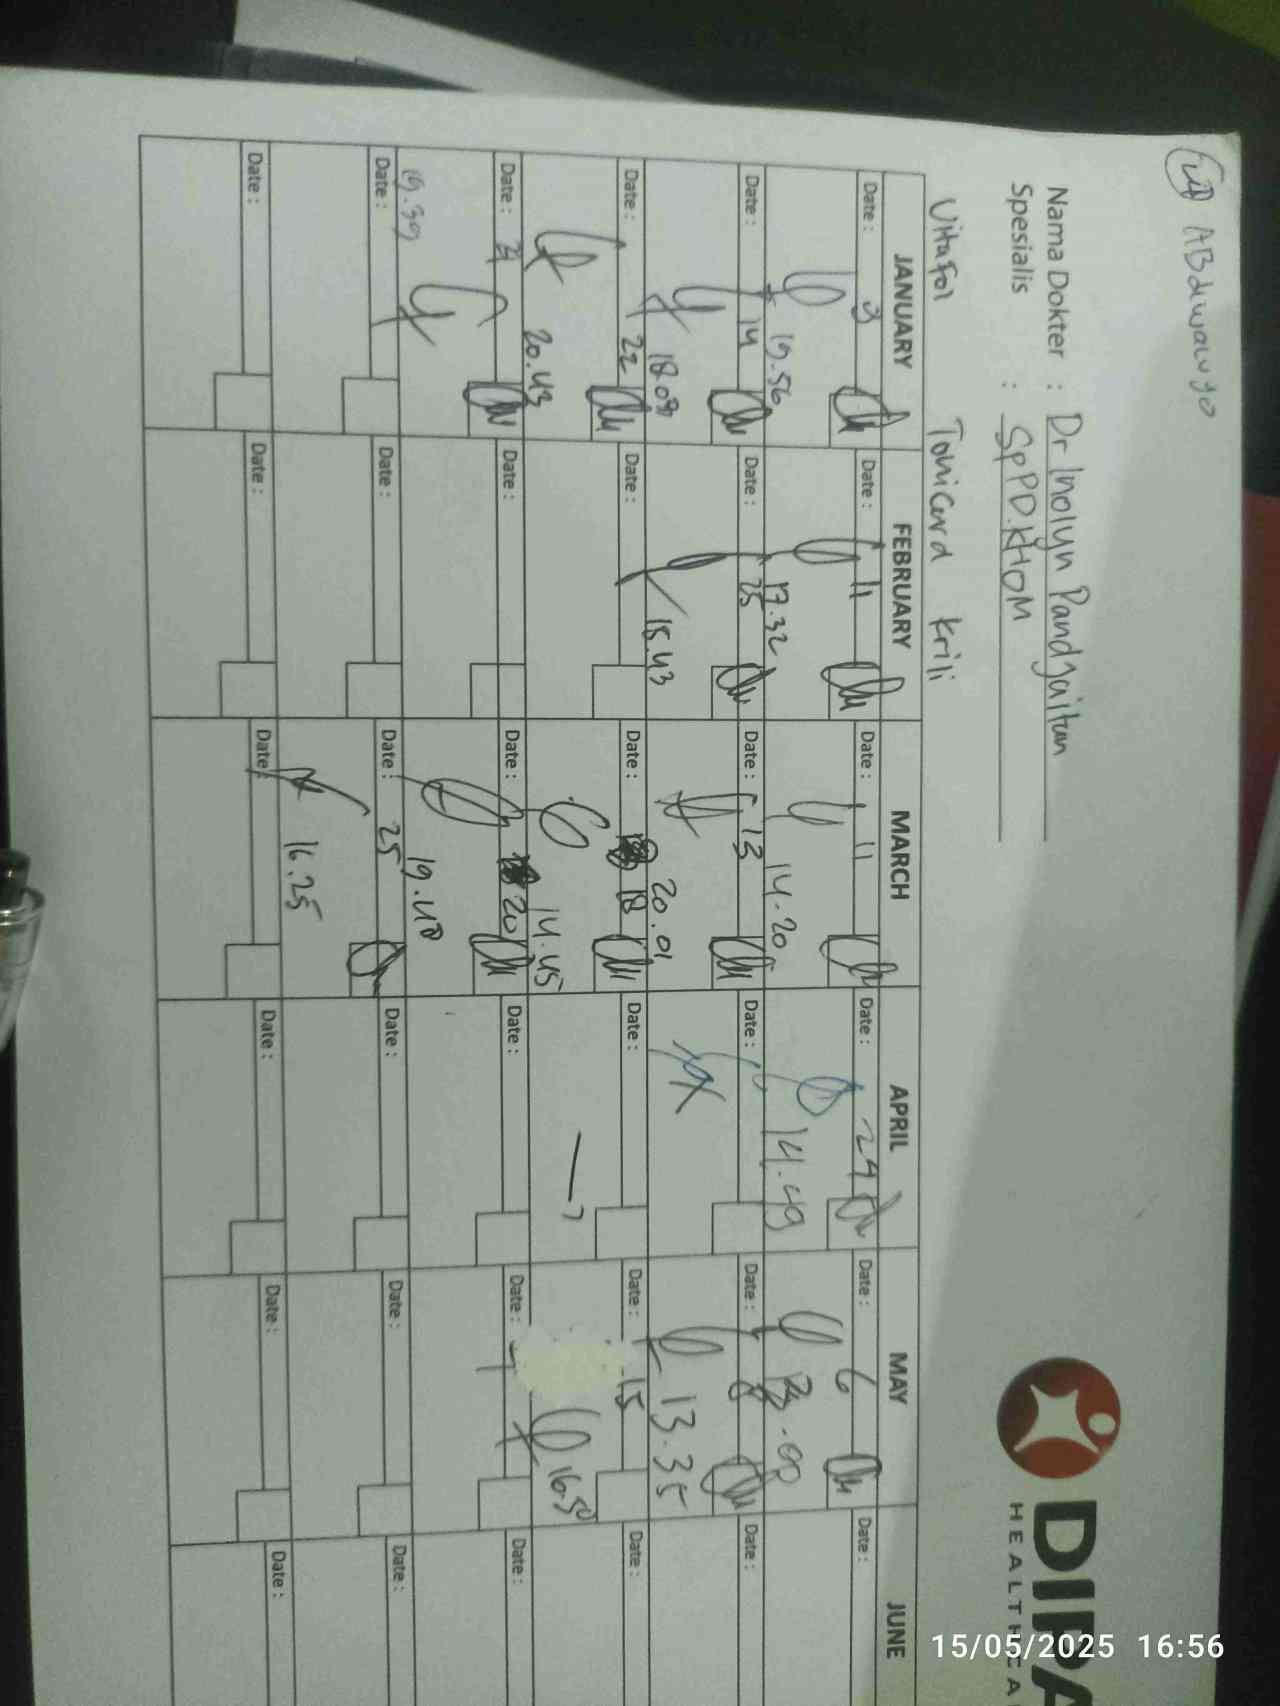 ABdiwaluyo
Nama Dokter : Dr Inolyn Pandjaitan
Spesialis : SpPD.KHOM
DIPA
HEALTHCA
Vitafol Tonicard Krili
JANUARY FEBRUARY MARCH APRIL MAY JUNE
Date : 3 Date : 11 Date : 11 Date : 24 Date : 6 Date :
19.56 17.32 14.20 14.49
Date : 14 Date : 25 Date : 13 Date : Date : 8 Date :
18.09 15.43 20.01 13.35
Date : 22 Date : Date : 18 Date : Date : 15 Date :
20.43 14.45 16.50
Date : Date : Date : 20 Date : Date : Date :
19.39 19.40
Date : Date : Date : 25 Date : Date : Date :
16.25
Date : Date : Date : Date : Date : Date :
15/05/2025 16:56